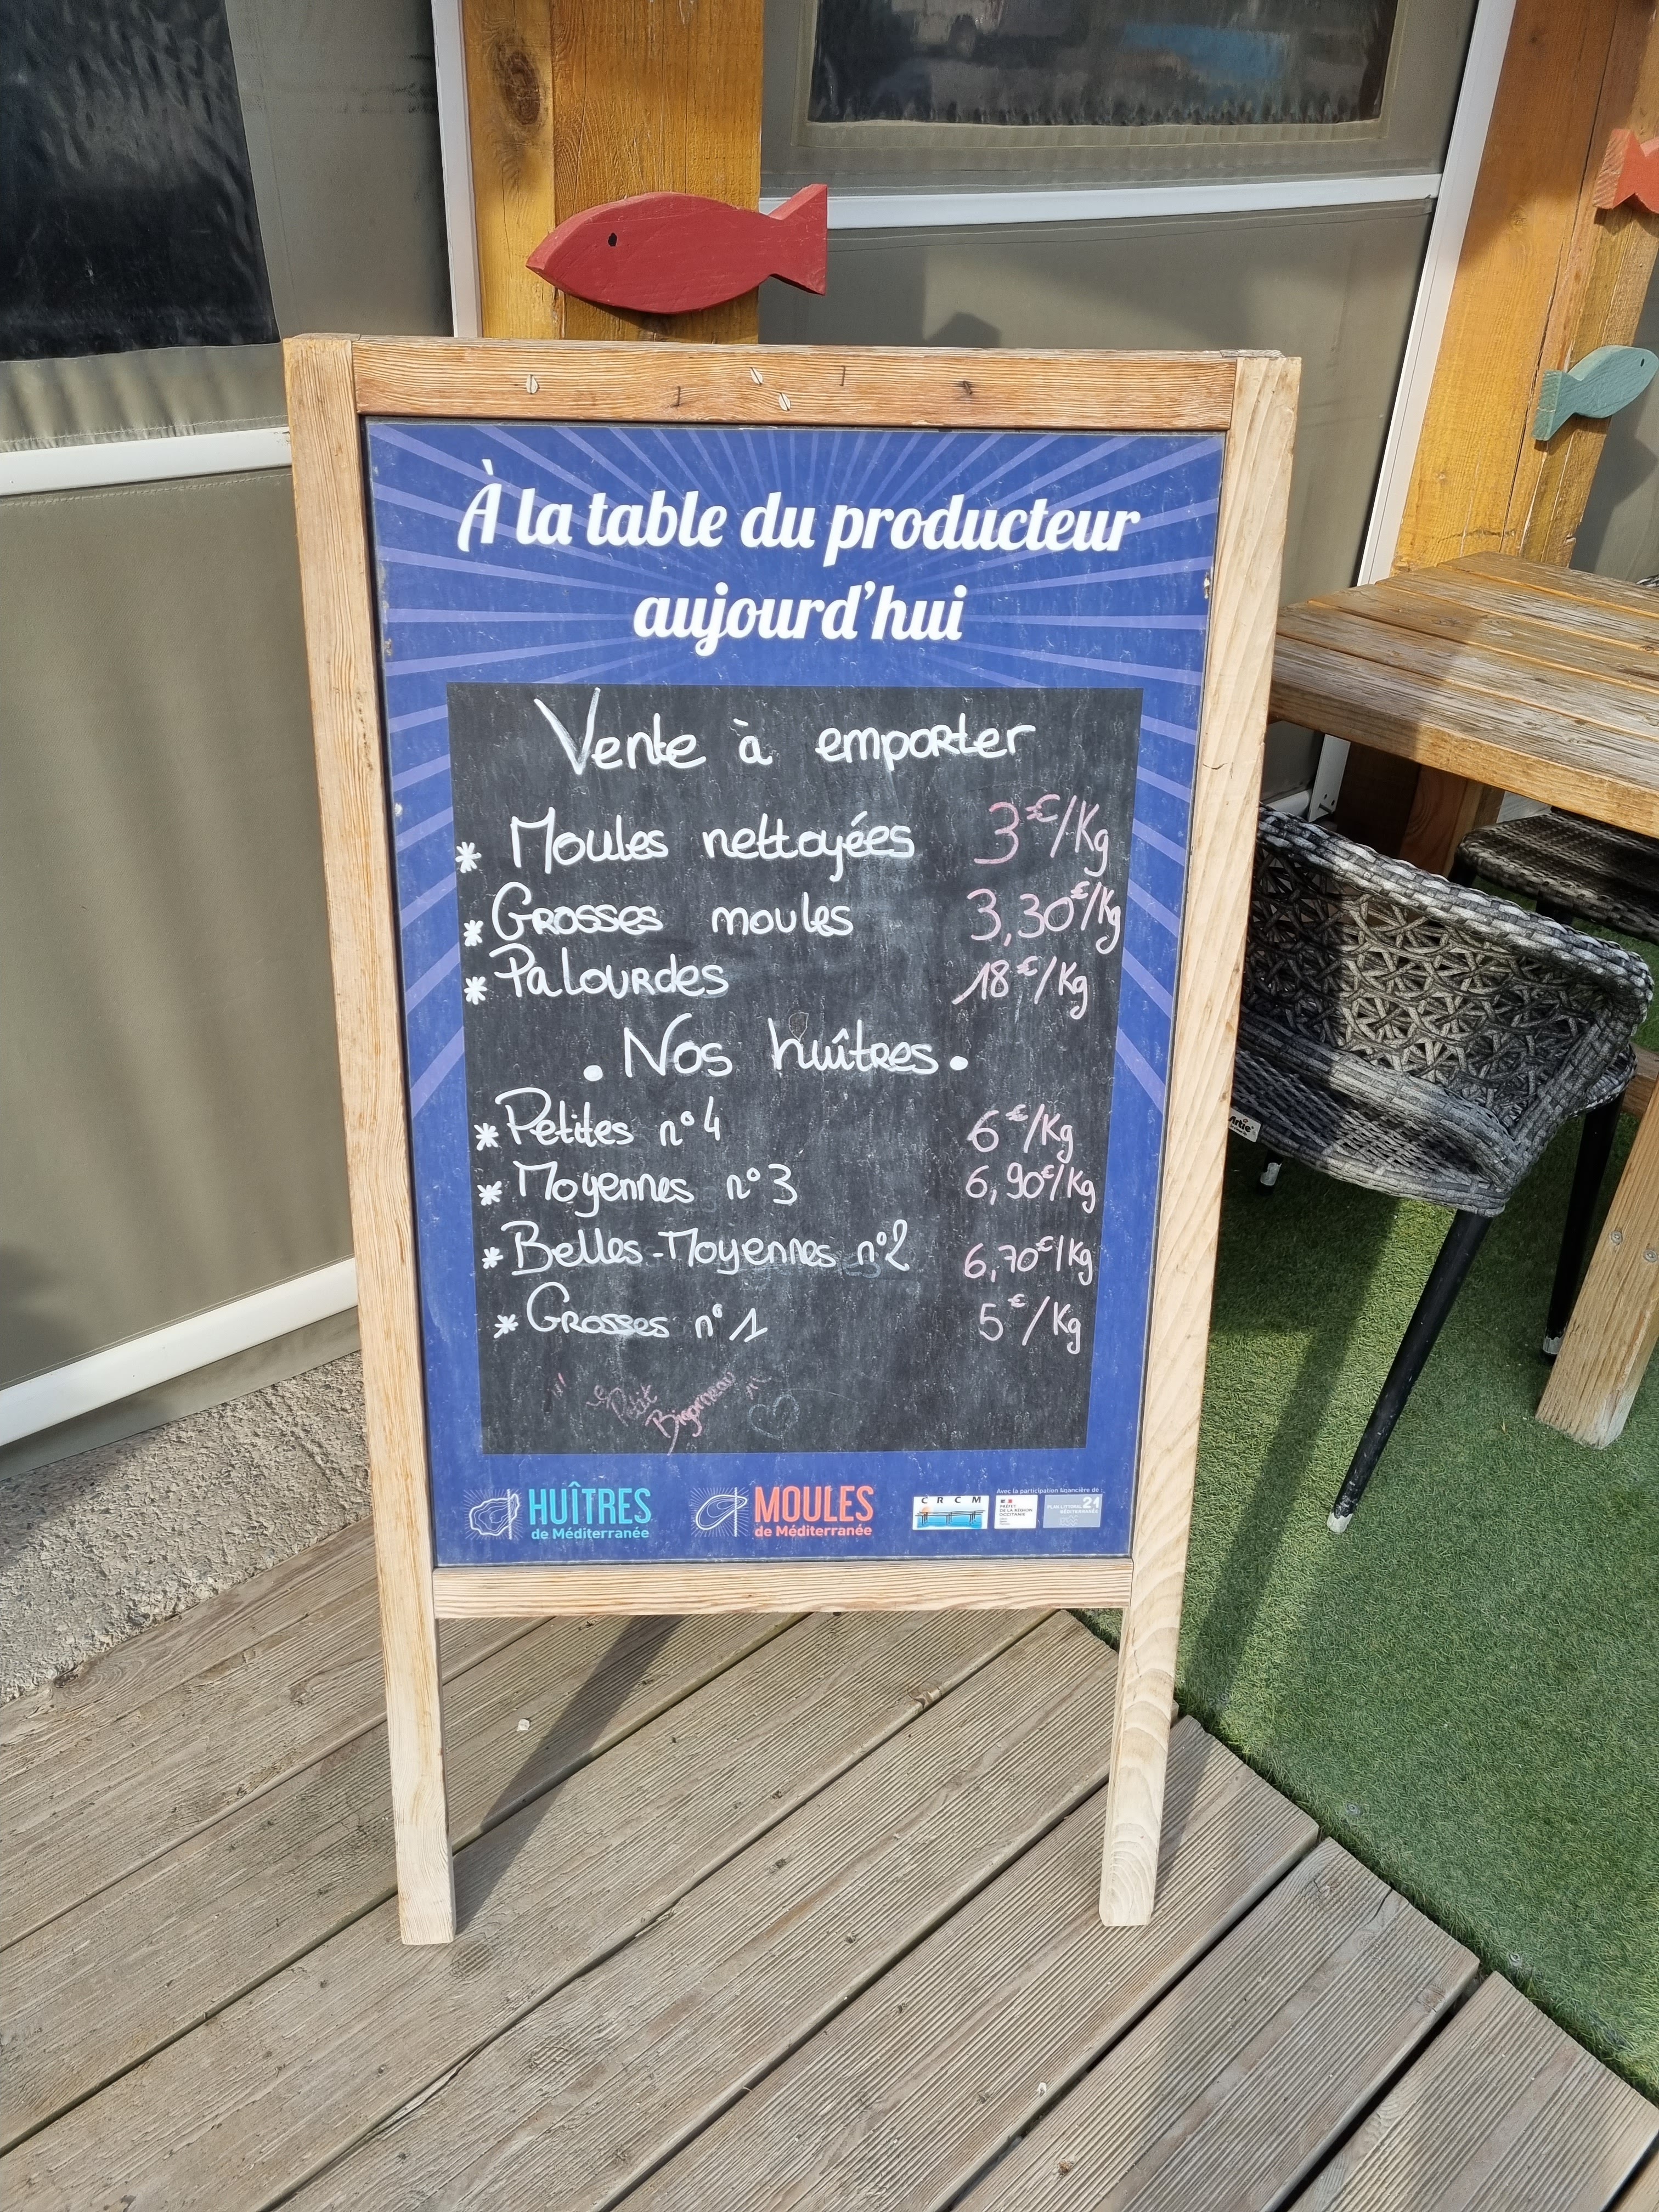 À la table du producteur
aujourd'hui
Vente à emporter
* Moules nettoyées 3€/Kg
* Grosses moules 3,30€/Kg
* Palourdes 18€/Kg
. Nos huîtres.
* Petites n°4 6€/Kg
* Moyennes n°3 6,90€/Kg
* Belles-Moyennes n°2 6,70€/Kg
* Grosses n°1 5€/Kg
Le Petit
Bigorneau
HUÎTRES
de Méditerranée
MOULES
de Méditerranée
Avec la participation financière de
CRCM
PRÉFET
DE LA RÉGION
OCCITANIE
PLAN LITTORAL 21
MÉDITERRANÉE
Artie